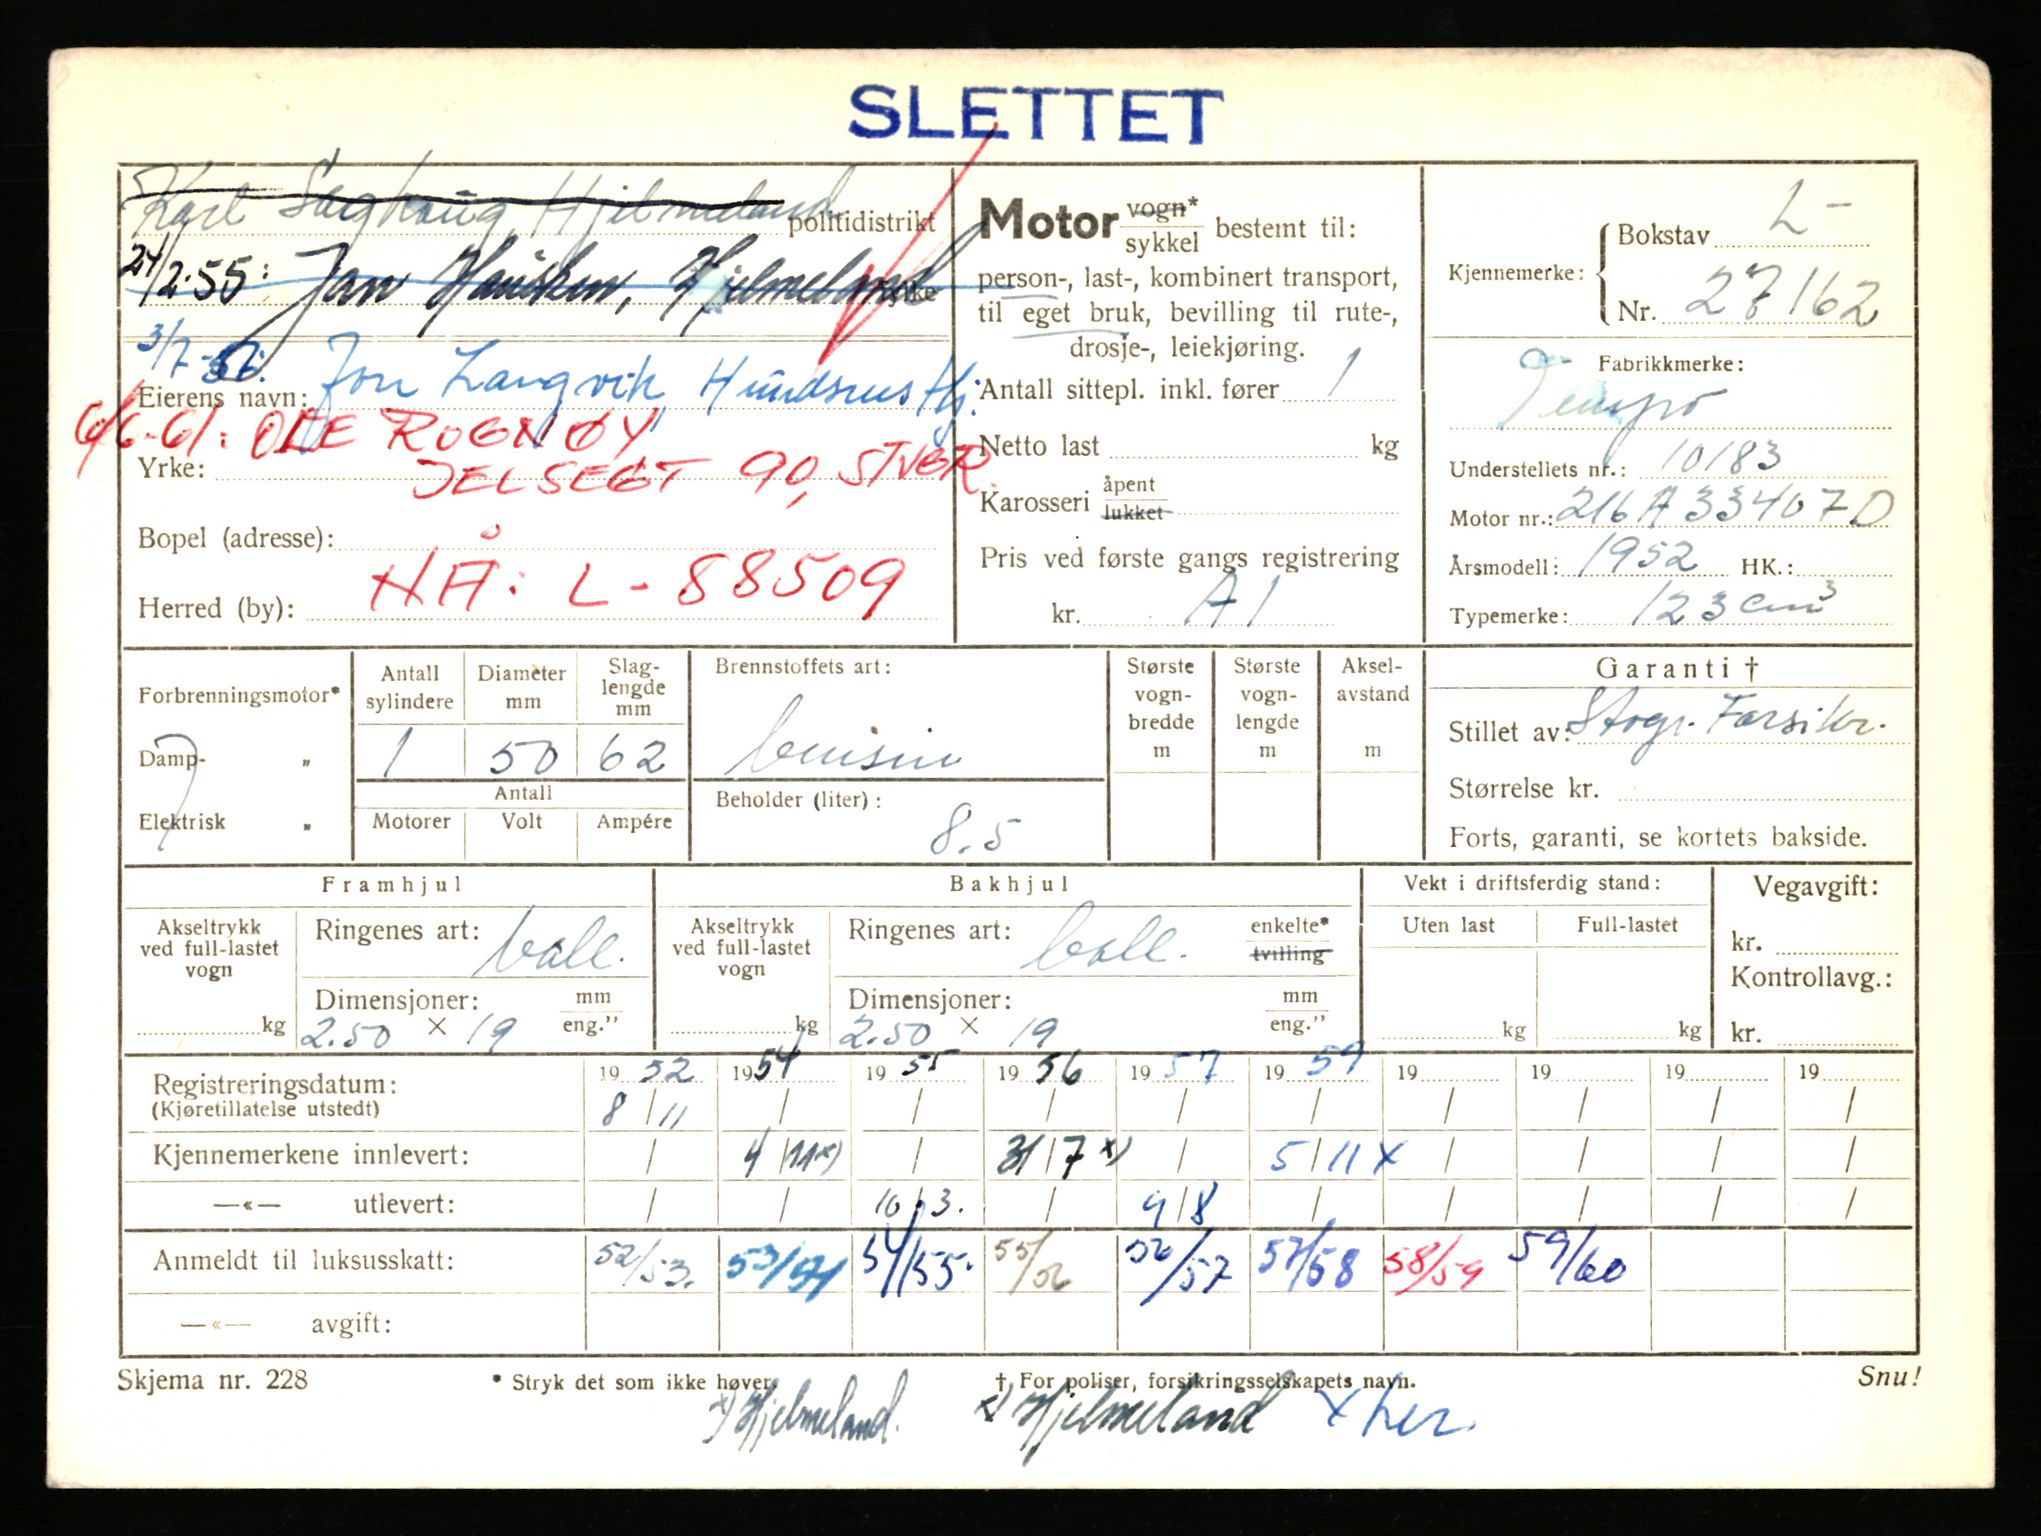 SLETTET
Karl Hjelmeland politidistrikt
24/2-55: Jan Hausken, Hjelmeland
3/7-56:
Eierens navn: Jon Langvik Hundsnes Hj.
6/6-61: OLE ROGNØY
Yrke: JELSEGT 90, STVGR.
Bopel (adresse):
NÅ: L-88509
Herred (by):
Motor vogn* sykkel bestemt til:
person-, last-, kombinert transport,
til eget bruk, bevilling til rute-,
drosje-, leiekjøring.
Antall sittepl. inkl. fører 1
Netto last kg
Karosseri åpent lukket
Pris ved første gangs registrering
kr. A1
Kjennemerke: Bokstav L-
Nr. 27162
Fabrikkmerke:
Tempo
Understellets nr.: 10183
Motor nr.: 216A33407D
Årsmodell: 1952 HK.:
Typemerke: 123 cm3
Forbrenningsmotor*
Damp- „
Elektrisk „
Antall sylindere Diameter mm Slaglengde mm
1 50 62
Antall
Motorer Volt Ampére
Brennstoffets art:
bensin
Beholder (liter):
8.5
Største vognbredde m
Største vognlengde m
Akselavstand m
Garanti †
Stillet av: Storgr. Forsikr.
Størrelse kr.
Forts, garanti, se kortets bakside.
Framhjul
Akseltrykk ved full-lastet vogn
kg
Ringenes art: ball.
Dimensjoner: mm eng."
2.50 × 19
Bakhjul
Akseltrykk ved full-lastet vogn
kg
Ringenes art: ball. enkelte* tvilling
Dimensjoner: mm eng."
2.50 × 19
Vekt i driftsferdig stand:
Uten last Full-lastet
kg kg
Vegavgift:
kr.
Kontrollavg.:
kr.
Registreringsdatum: 1952 1954 1955 1956 1957 1959 19 19 19 19
(Kjøretillatelse utstedt) 8/11 / / / / / / / / /
Kjennemerkene innlevert: / 4/11 x) / 31/7 x) / 5/11 x / / / /
—«— utlevert: / / 10/3. / 9/8 / / / / /
Anmeldt til luksusskatt: 52/53. 53/54 54/55. 55/56 56/57 57/58 58/59 59/60
—«— avgift:
Skjema nr. 228 * Stryk det som ikke høver. † For poliser, forsikringsselskapets navn. Snu!
x) Hjelmeland. x) Hjelmeland x her